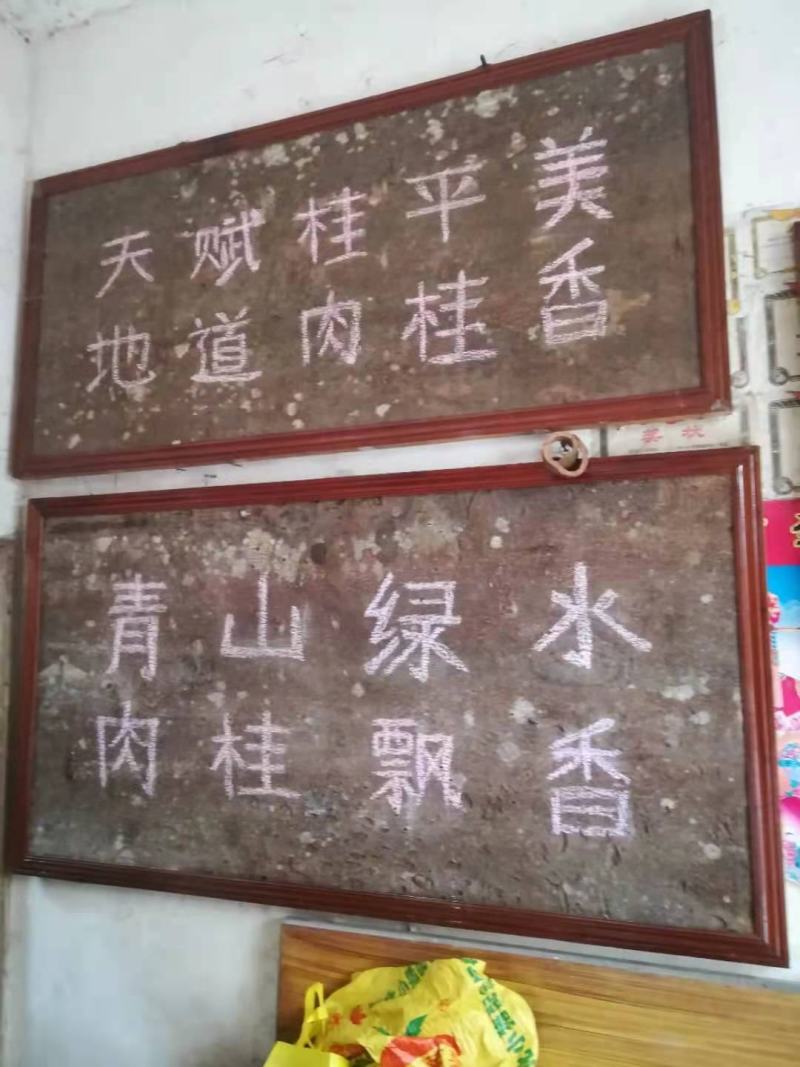 天赋桂平美
地道肉桂香
奖状
青山绿水
肉桂飘香